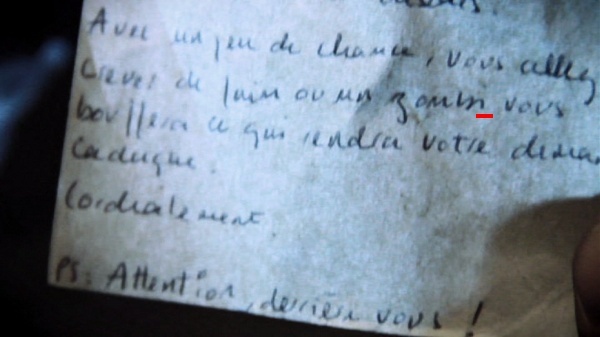 Avec un peu de chance, vous allez
crever de faim ou un zombie vous
bouffera ce qui rendra votre deman
caduque.
Cordialement.
PS: Attention, derrière vous !